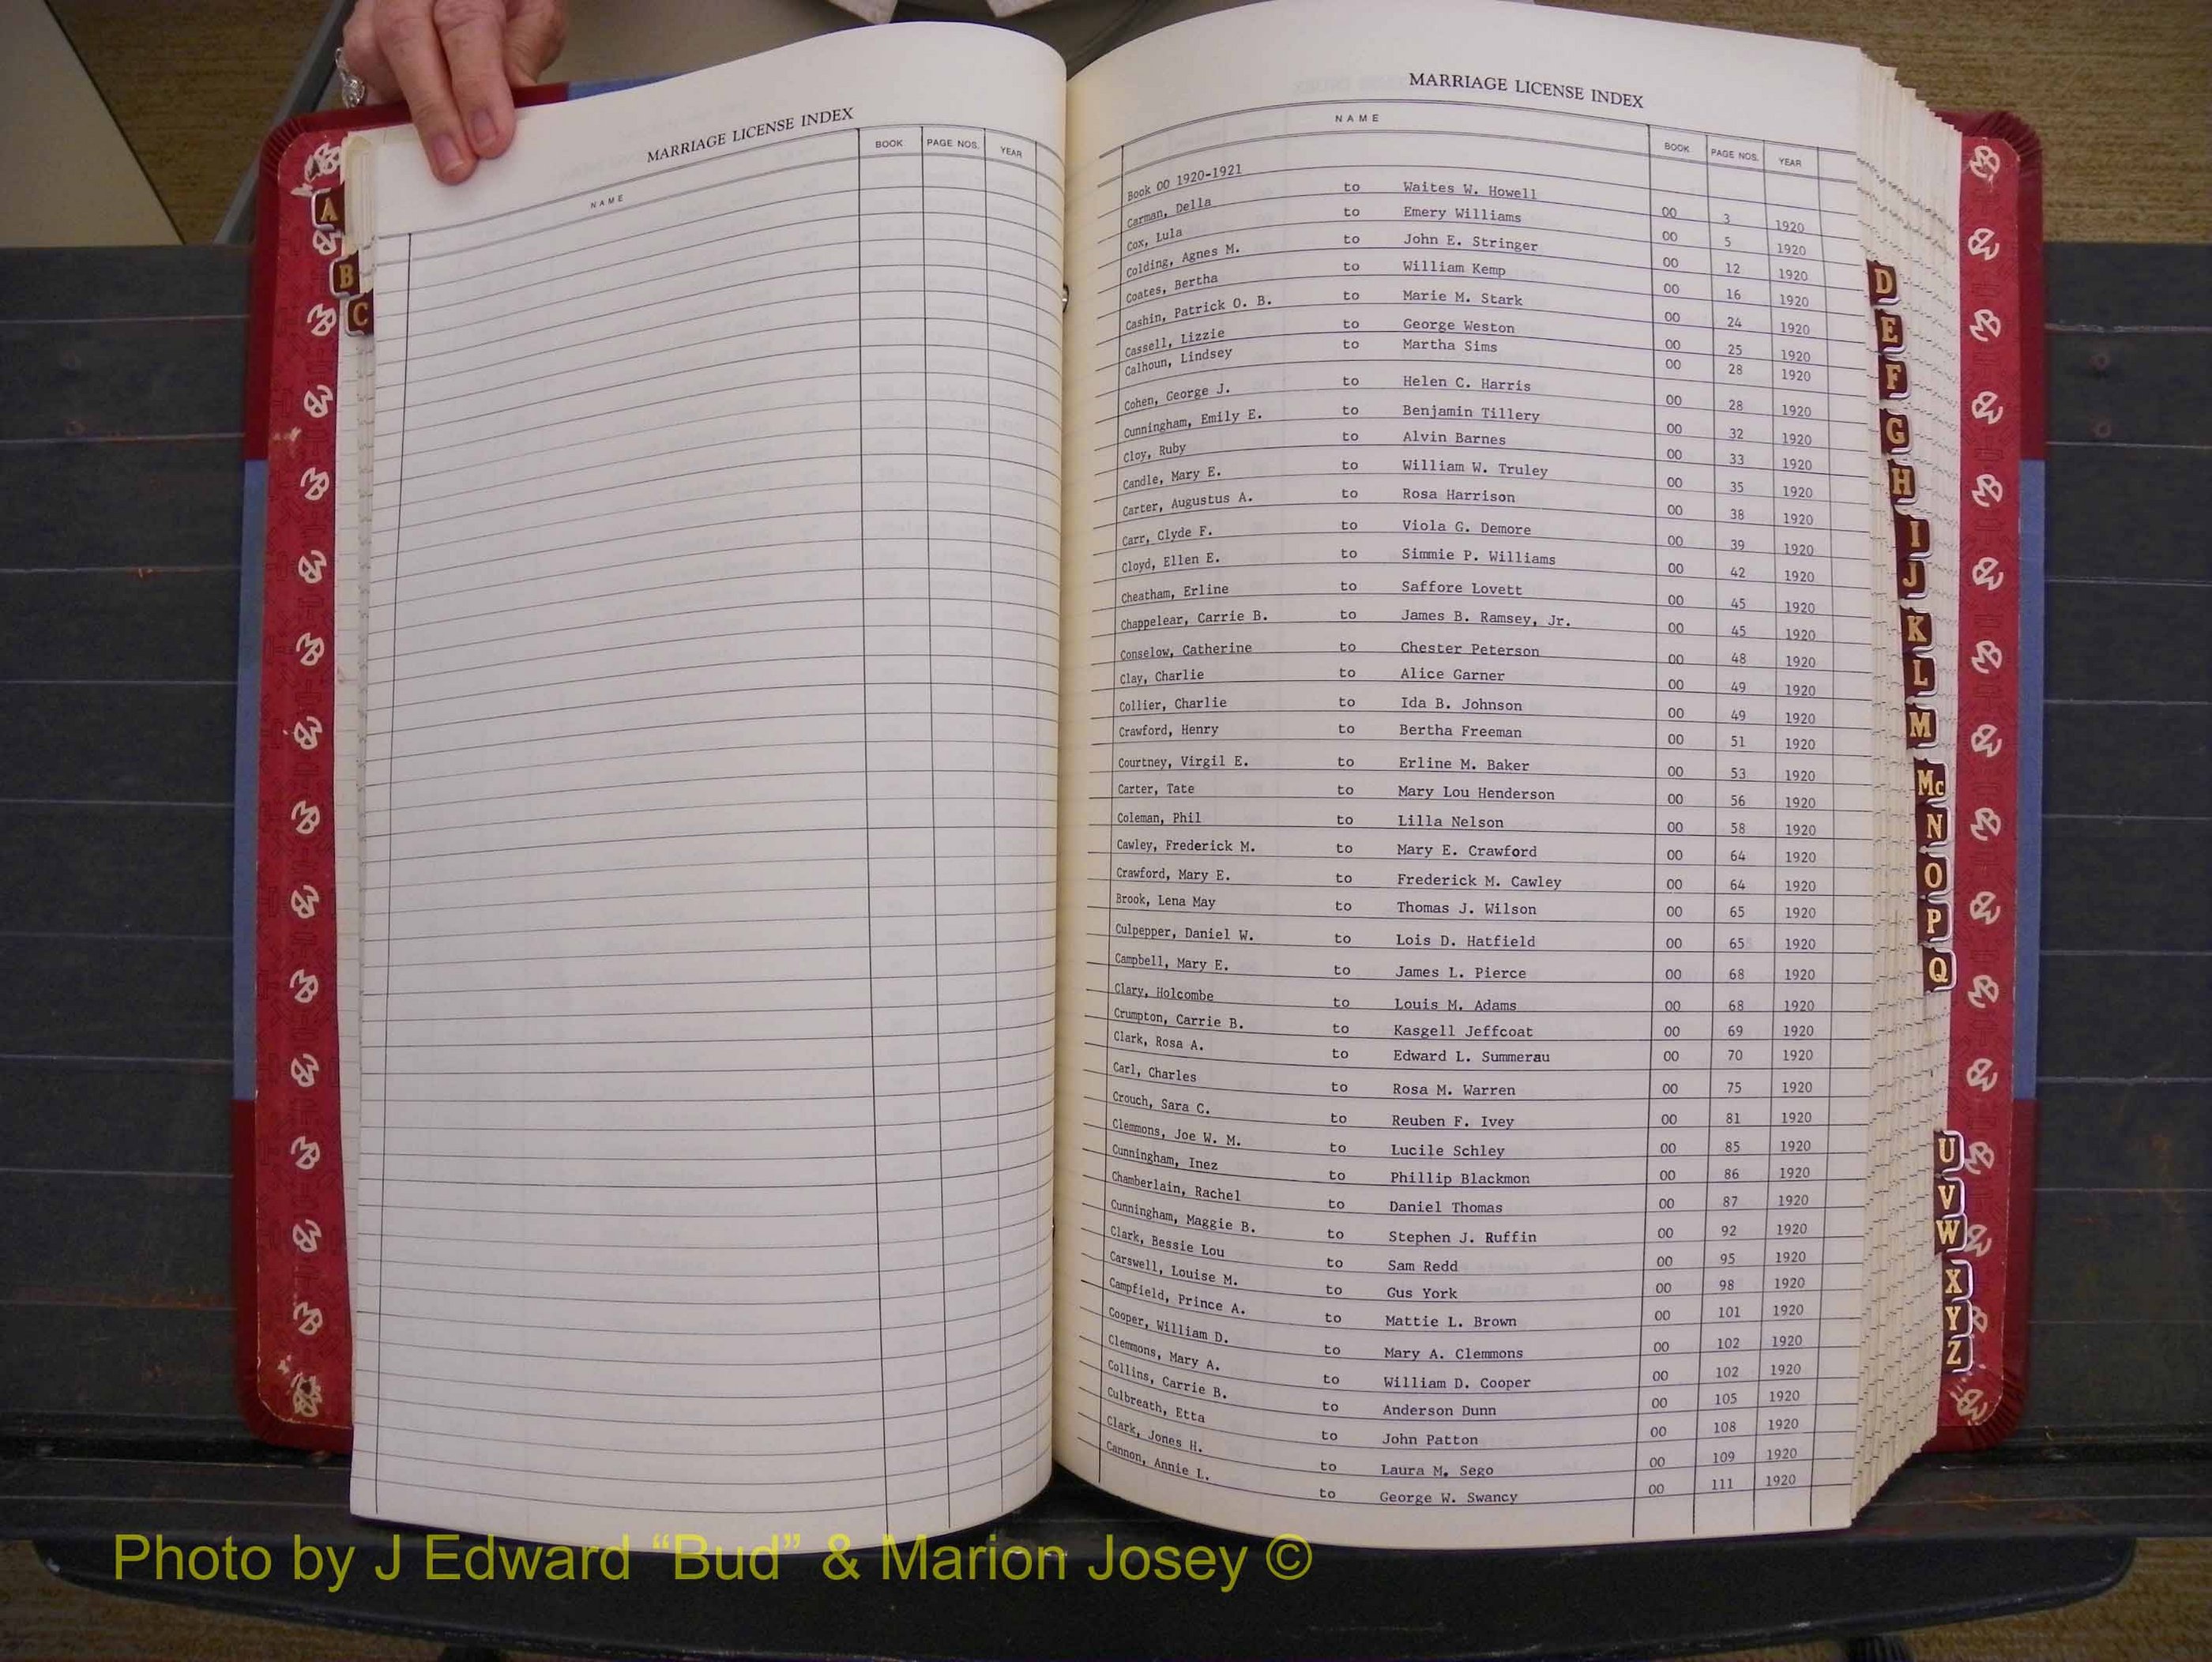 MARRIAGE LICENSE INDEX
NAME BOOK PAGE NOS. YEAR
A
B
C
MARRIAGE LICENSE INDEX
NAME BOOK PAGE NOS. YEAR
Book OO 1920-1921
Carman, Della to Waites W. Howell OO 3 1920
Cox, Lula to Emery Williams OO 5 1920
Colding, Agnes M. to John E. Stringer OO 12 1920
Coates, Bertha to William Kemp OO 16 1920
Cashin, Patrick O. B. to Marie M. Stark OO 24 1920
Cassell, Lizzie to George Weston OO 25 1920
Calhoun, Lindsey to Martha Sims OO 28 1920
Cohen, George J. to Helen C. Harris OO 28 1920
Cunningham, Emily E. to Benjamin Tillery OO 32 1920
Cloy, Ruby to Alvin Barnes OO 33 1920
Candle, Mary E. to William W. Truley OO 35 1920
Carter, Augustus A. to Rosa Harrison OO 38 1920
Carr, Clyde F. to Viola G. Demore OO 39 1920
Cloyd, Ellen E. to Simmie P. Williams OO 42 1920
Cheatham, Erline to Saffore Lovett OO 45 1920
Chappelear, Carrie B. to James B. Ramsey, Jr. OO 45 1920
Conselow, Catherine to Chester Peterson OO 48 1920
Clay, Charlie to Alice Garner OO 49 1920
Collier, Charlie to Ida B. Johnson OO 49 1920
Crawford, Henry to Bertha Freeman OO 51 1920
Courtney, Virgil E. to Erline M. Baker OO 53 1920
Carter, Tate to Mary Lou Henderson OO 56 1920
Coleman, Phil to Lilla Nelson OO 58 1920
Cawley, Frederick M. to Mary E. Crawford OO 64 1920
Crawford, Mary E. to Frederick M. Cawley OO 64 1920
Brook, Lena May to Thomas J. Wilson OO 65 1920
Culpepper, Daniel W. to Lois D. Hatfield OO 65 1920
Campbell, Mary E. to James L. Pierce OO 68 1920
Clary, Holcombe to Louis M. Adams OO 68 1920
Crumpton, Carrie B. to Kasgell Jeffcoat OO 69 1920
Clark, Rosa A. to Edward L. Summerau OO 70 1920
Carl, Charles to Rosa M. Warren OO 75 1920
Crouch, Sara C. to Reuben F. Ivey OO 81 1920
Clemmons, Joe W. M. to Lucile Schley OO 85 1920
Cunningham, Inez to Phillip Blackmon OO 86 1920
Chamberlain, Rachel to Daniel Thomas OO 87 1920
Cunningham, Maggie B. to Stephen J. Ruffin OO 92 1920
Clark, Bessie Lou to Sam Redd OO 95 1920
Carswell, Louise M. to Gus York OO 98 1920
Campfield, Prince A. to Mattie L. Brown OO 101 1920
Cooper, William D. to Mary A. Clemmons OO 102 1920
Clemmons, Mary A. to William D. Cooper OO 102 1920
Collins, Carrie B. to Anderson Dunn OO 105 1920
Culbreath, Etta to John Patton OO 108 1920
Clark, Jones H. to Laura M. Sego OO 109 1920
Cannon, Annie L. to George W. Swancy OO 111 1920
D
E
F
G
H
I
J
K
L
M
Mc
N
O
P
Q
U
V
W
X
Y
Z
Photo by J Edward “Bud” & Marion Josey ©